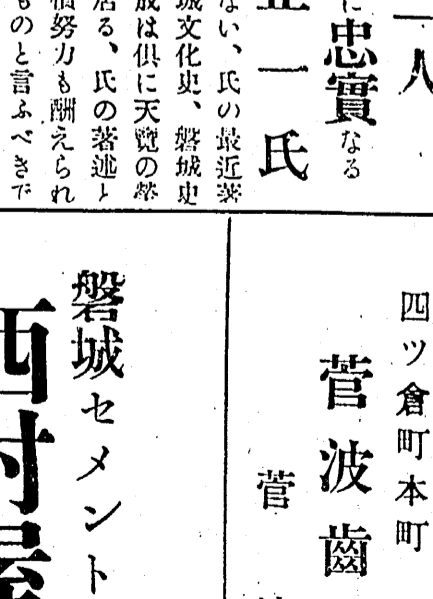 一人
に忠實なる
一氏
ない、氏の最近著
城文化史、磐城史
成は倶に天覽の榮
居る、氏の著述と
努力も酬えられ
ものと言ふべきで
四ツ倉町本町
菅波齒
菅
磐城セメント
西村屋